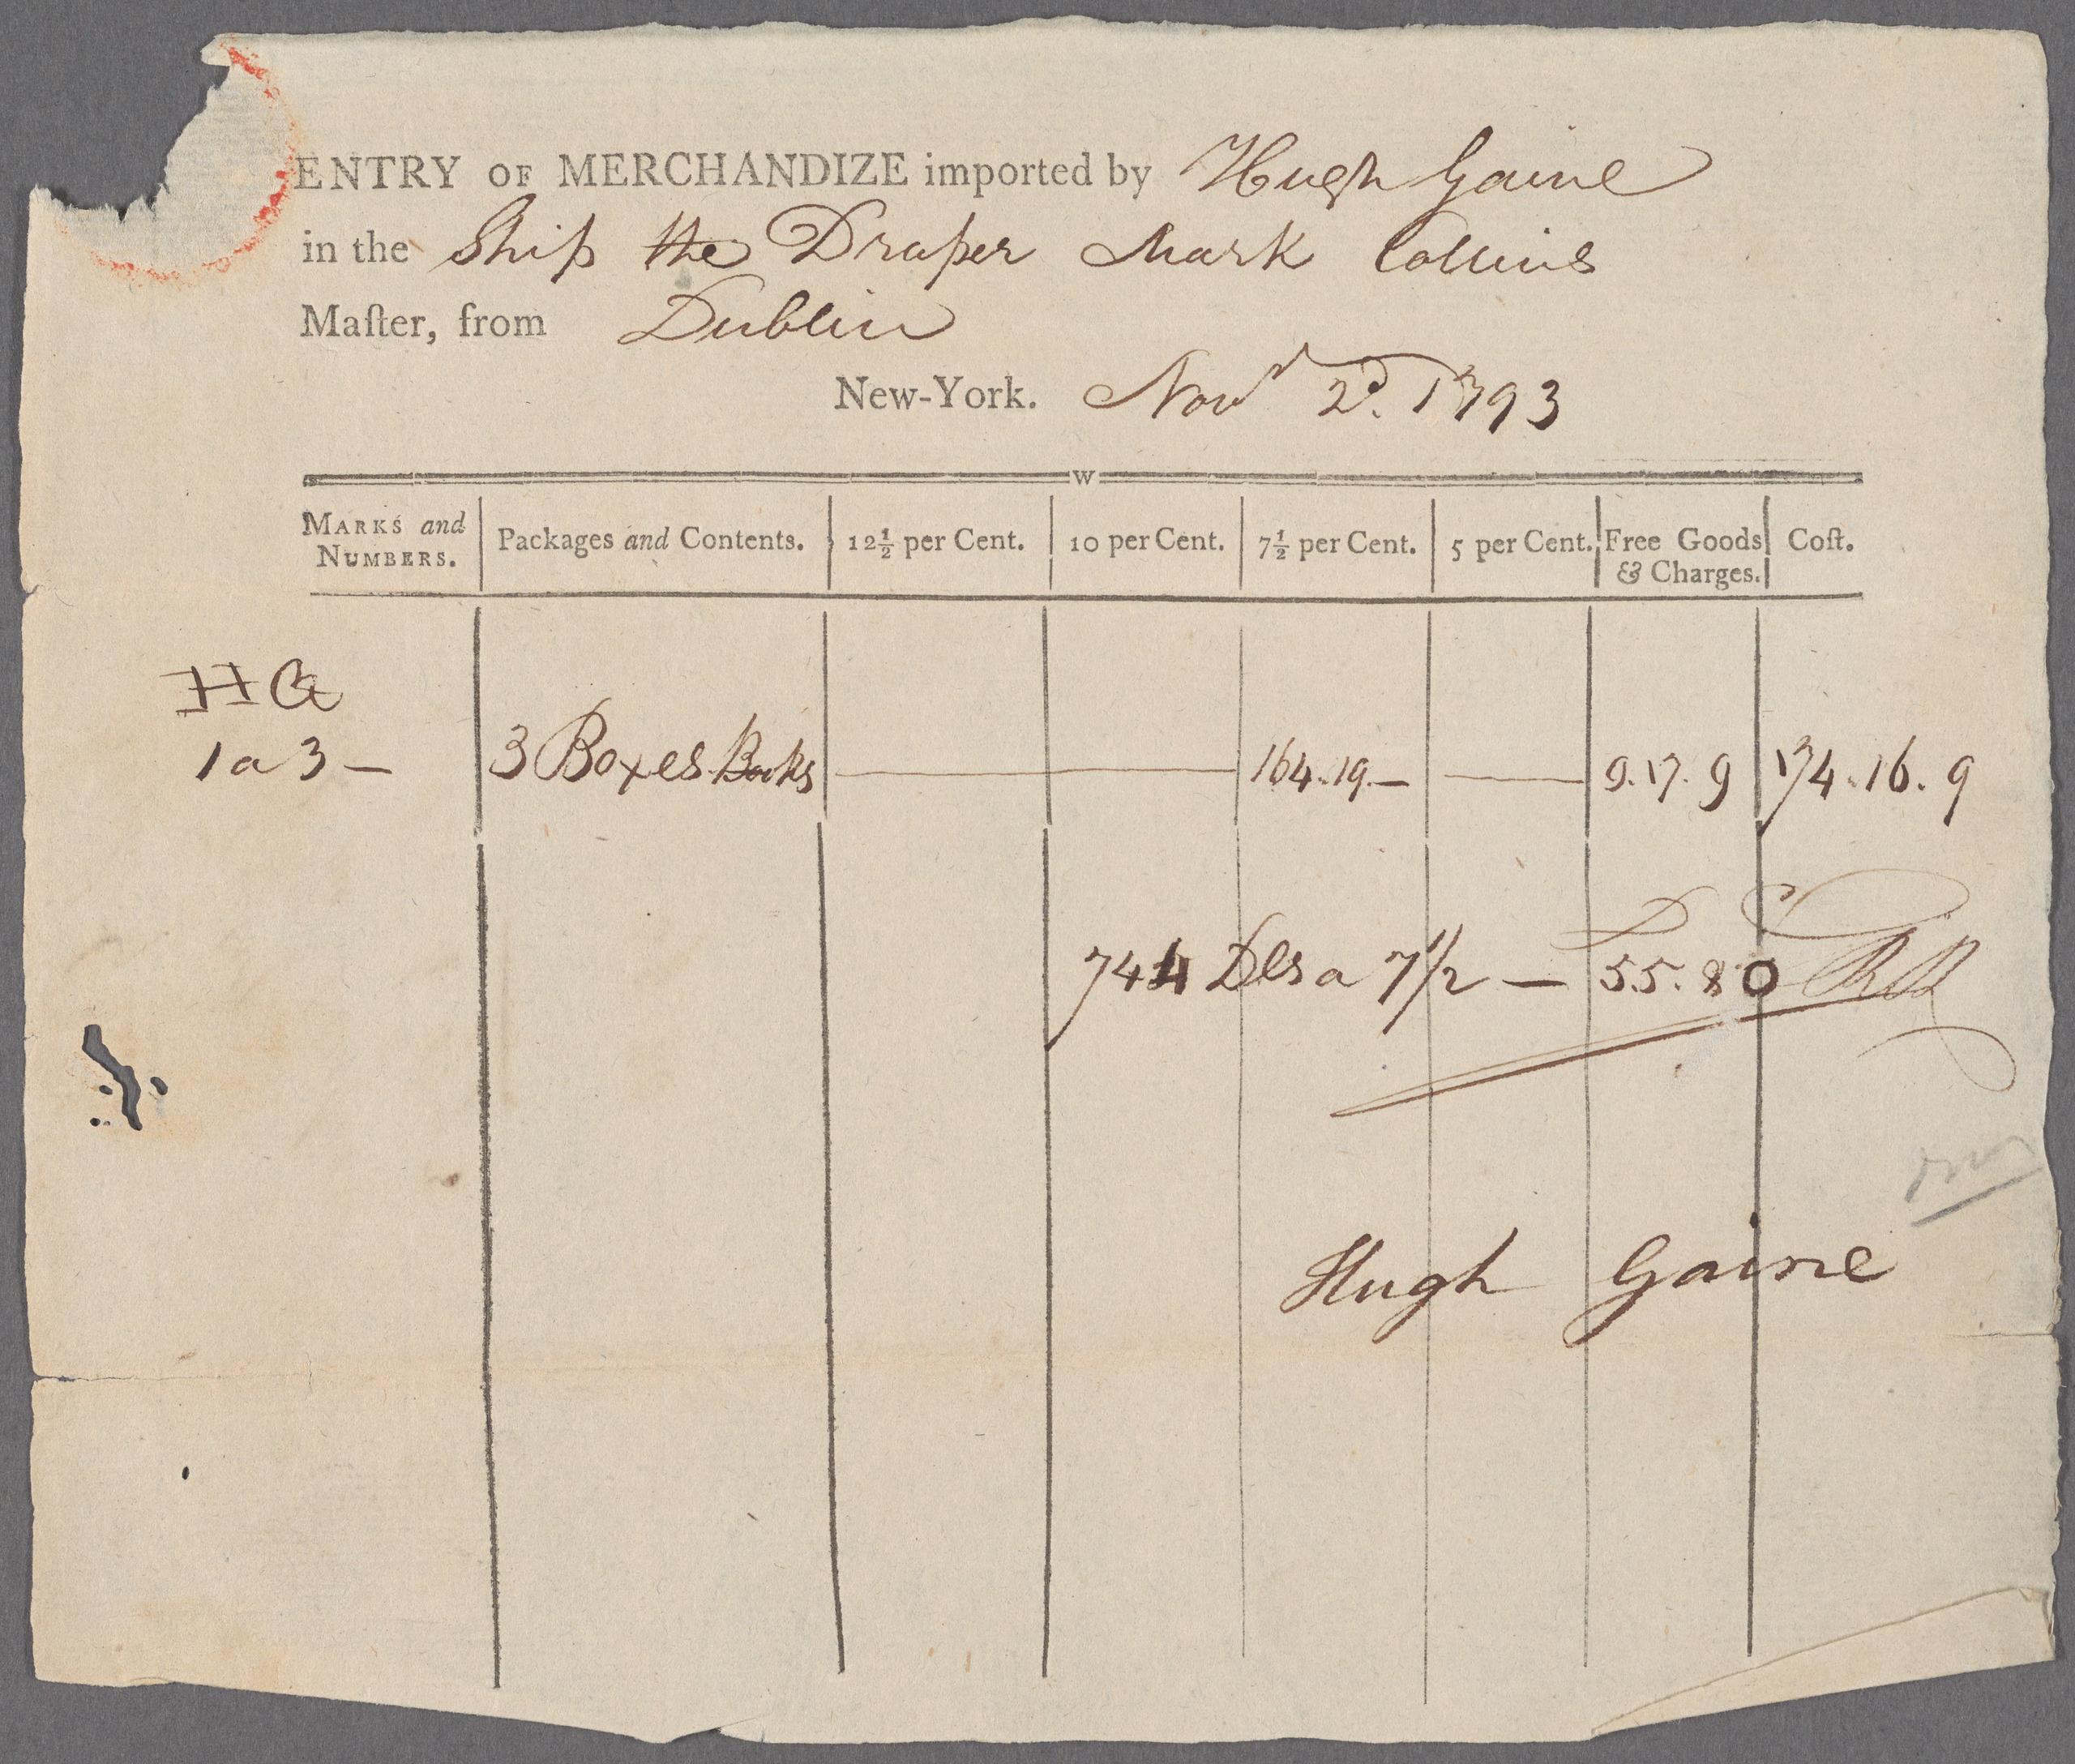 ENTRY OF MERCHANDIZE imported by Hugh Gaine
in the Ship the Draper Mark Collins
Maſter, from Dublin
New-York. Novr 2d. 1793
W
MARKS and NUMBERS. Packages and Contents. 12½ per Cent. 10 per Cent. 7½ per Cent. 5 per Cent. Free Goods & Charges. Coſt.
HG
1 a 3 — 3 Boxes Books — 164.19.— — 9.17.9 174.16.9
D C
744 Dls a 7 1/2 — 55.80
Hugh Gaine